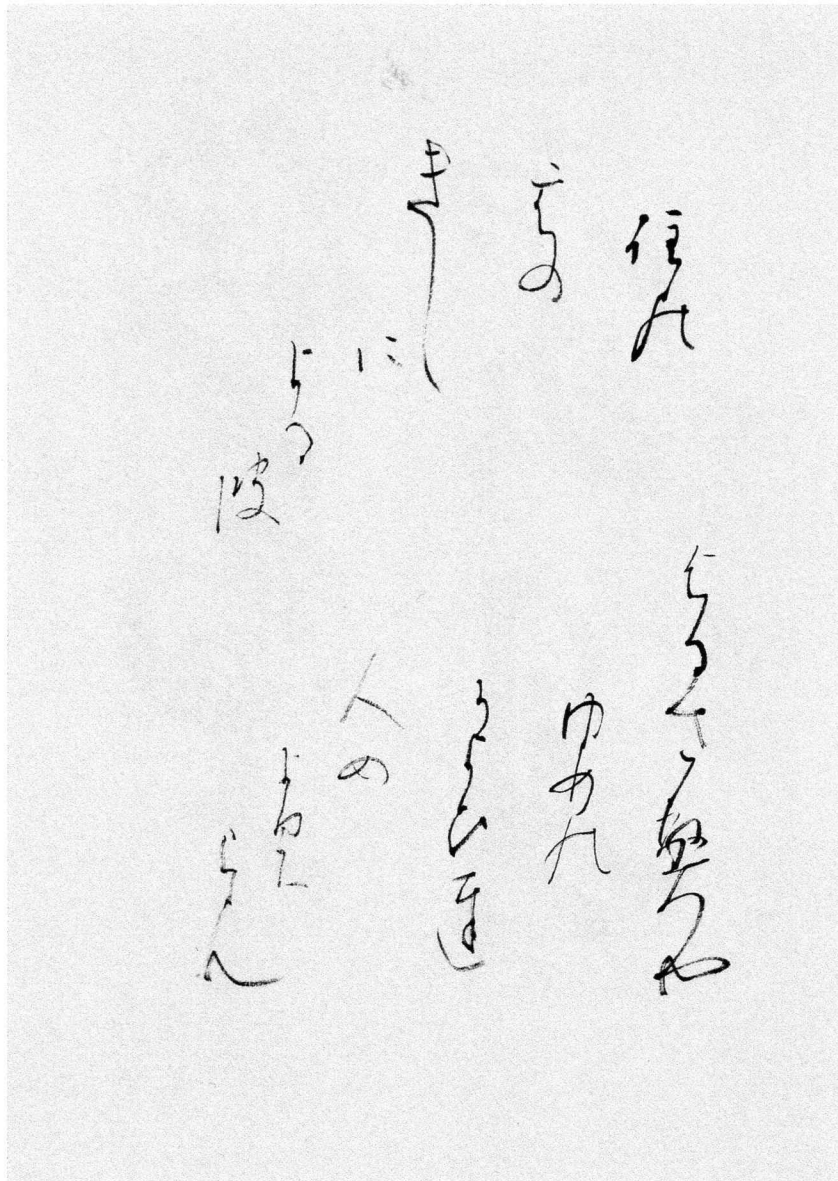 住の
えの
きし
に
よる
波
よるさへや
ゆめの
かよひ遅
人め
よく
らん